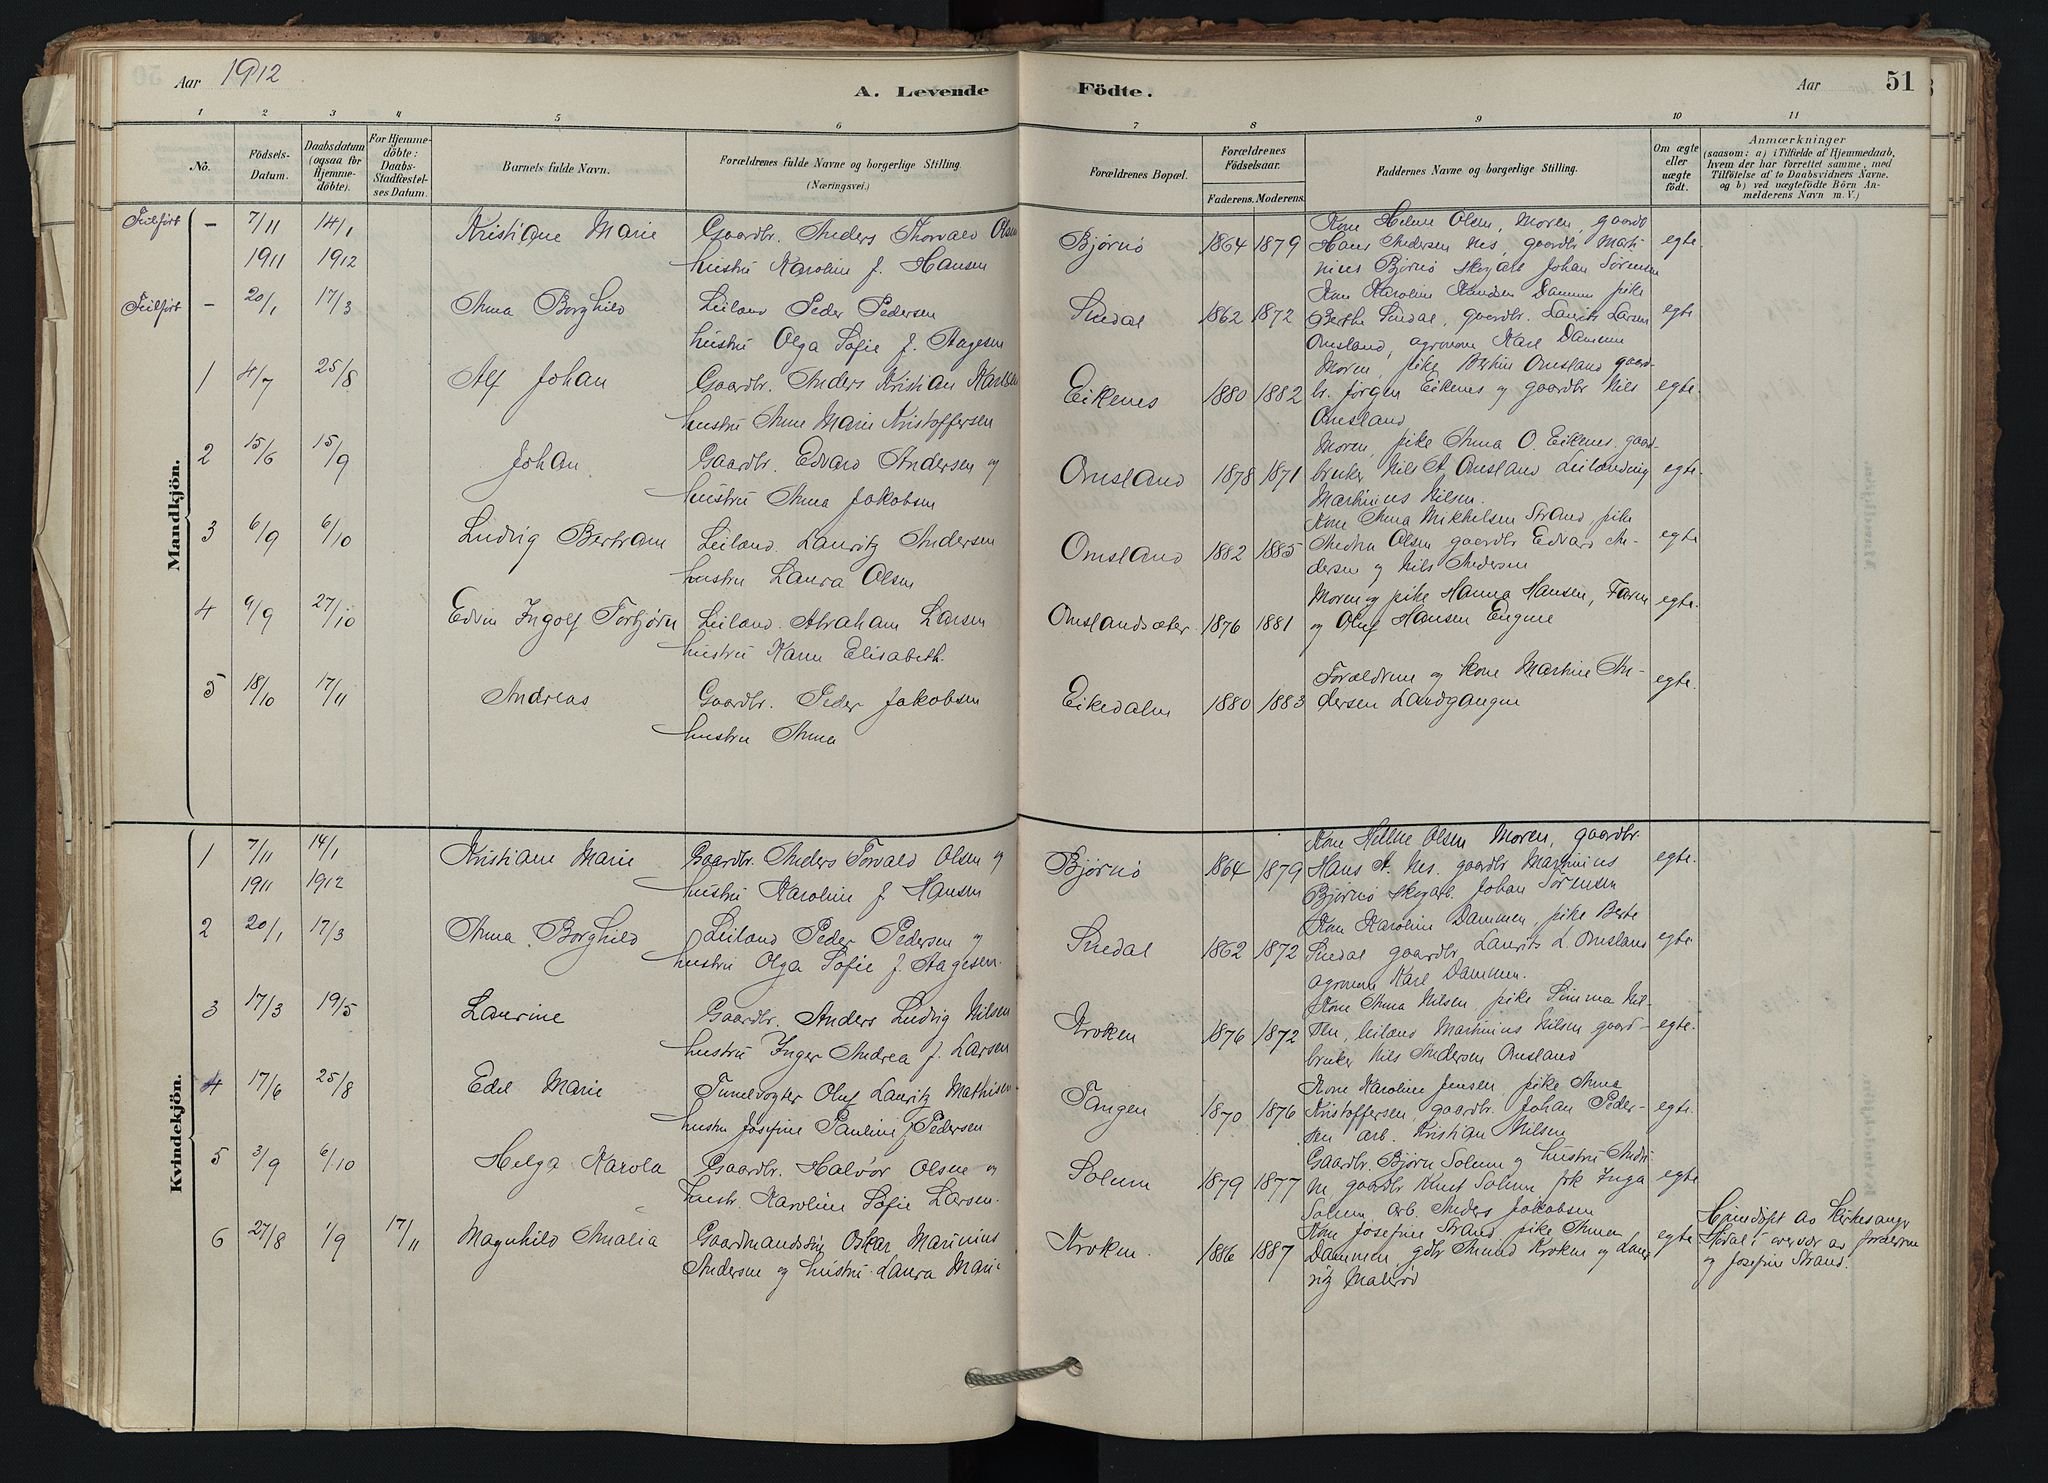 Aar 1912
A. Levende Födte.
Aar 51
1 2 3 4 5 6 7 8 9 10 11
No.
Födsels-Datum.
Daabsdatum (ogsaa for Hjemme-döbte).
For Hjemme-döbte: Daabs-Stadfæstel-ses Datum.
Barnets fulde Navn.
Forældrenes fulde Navne og borgerlige Stilling.
(Næringsvei.)
Forældrenes Bopæl.
Forældrenes Födselsaar.
Faderens. Moderens.
Faddernes Navne og borgerlige Stilling.
Om ægte eller uægte födt.
Anmærkninger
(saasom: a) i Tilfælde af Hjemmedaab,
hvem der har forrettet samme, med
Tilföielse af to Daabsvidners Navne.
og b) ved uægtefödte Börn An-
melderens Navn m. V.)
Mandkjön.
Feilført - 7/11 1911 14/1 1912 Kristiane Marie Gaardbr. Anders Thorvald Olsen
hustru Karoline f. Hansen
Bjørnø 1864 1879 Kone Helene Olsen, Moren, gaardb
Hans Andersen Nes, gaardbr Marti-
nius Bjørnø skogarb Johan Sørensen
egte
Feilført - 20/1 17/3 Anna Borghild Leilænd Peder Pedersen
hustru Olga Sofie f. Aagesen
1862 1872 Kone Karoline Knudsen Dammen pike
Berthe gaardbr. Laurits Larsen
Omsland, agronom Karl Dammen
egte
1 4/7 25/8 Alf Johan Gaardbr. Anders Kristian Karlsen
hustru Anne Marie Kristoffersen
Eikenes 1880 1882 Moren, pike Omsland gaard-
br. Jørgen Eikenes og gaardbr Nils
Omsland
egte.
2 15/6 15/9 Johan Gaardbr. Edvard Andersen og
hustru Anna Jakobsen
Omsland 1878 1871 Moren, pike Anna O. Eikenes, gaard-
bruker Nils A. Omsland
Martinius Nilsen.
egte.
3 6/9 6/10 Ludvig Bertram Leilænd. Lauritz Andersen
hustru Laura Olsen
Omsland 1882 1885 Kone Anna Mikkelsen Strand, pike
Olsen gaardbr Edvard An-
dersen og Nils Andersen
egte
4 9/9 27/10 Edvin Ingolf Torbjørn Leilænd. Abraham Larsen
hustru Karen Elisabeth.
Omslandsæter. 1876 1881 Moren og pike Hanna Hansen,
og Oluf Hansen Eugene
egte.
5 18/10 17/11 Andreas Gaardbr. Peder Jakobsen
hustru Anna
Eikedalen 1880 1883 Forældrene og kone Martine An-
dersen Landgangen
egte.
Kvindekjön.
1 7/11 1911 14/1 1912 Kristiane Marie Gaardbr. Anders Torvald Olsen og
hustru Karoline f. Hansen
Bjørnø 1864 1879 Kone Helene Olsen Moren, gaardbr.
Hans A. Nes. gaardbr Martinius
Bjørnø skogarb. Johan Sørensen
egte.
2 20/1 17/3 Anna Borghild Leilænd Peder Pedersen og
hustru Olga Sofie f. Aagesen.
1862 1872 Kone Karoline Dammen, pike Berte
gaardbr Laurits L. Omsland
agronom Karl Dammen.
egte.
3 17/3 19/5 Laurine Gaardbr. Anders Ludvig Nilsen
hustru Inger Andrea f. Larsen
Kroken 1876 1872 Kone Anna Nilsen, pike Nil-
sen, leilænd Martinius Nilsen gaard-
bruker Nils Andersen Omsland
egte.
4 17/6 25/8 Edel Marie Tunelvogter Oluf Lauritz Mathisen
hustru Josefine Pauline f Pedersen
Tangen 1870 1876 Kone Karoline Jensen, pike Anna
Kristoffersen, gaardbr. Johan Peder-
sen arb. Kristian Nilsen
egte.
5 3/9 6/10 Helga Karola Gaardbr. Halvor Olsen og
hustr. Karoline Sofie Larsen.
Solum 1879 1877 Gaardbr. Bjørn Solum og hustru Andri-
ne gaardbr Knut Solum pik Inga
Solum, arb. Anders Jakobsen
egte
6 27/8 1/9 17/11 Magnhild Amalia Gaardmandssøn Oskar Marinius
Andersen og hustru Laura Marie
Kroken. 1886 1887 Kone Josefine Strand pike Anna
Dammen, gdbr Amund Kroken og Lau-
ritz
egte
Hjemdøpt av Kirkesanger
i overvær av forældrene
og Josefine Strand.